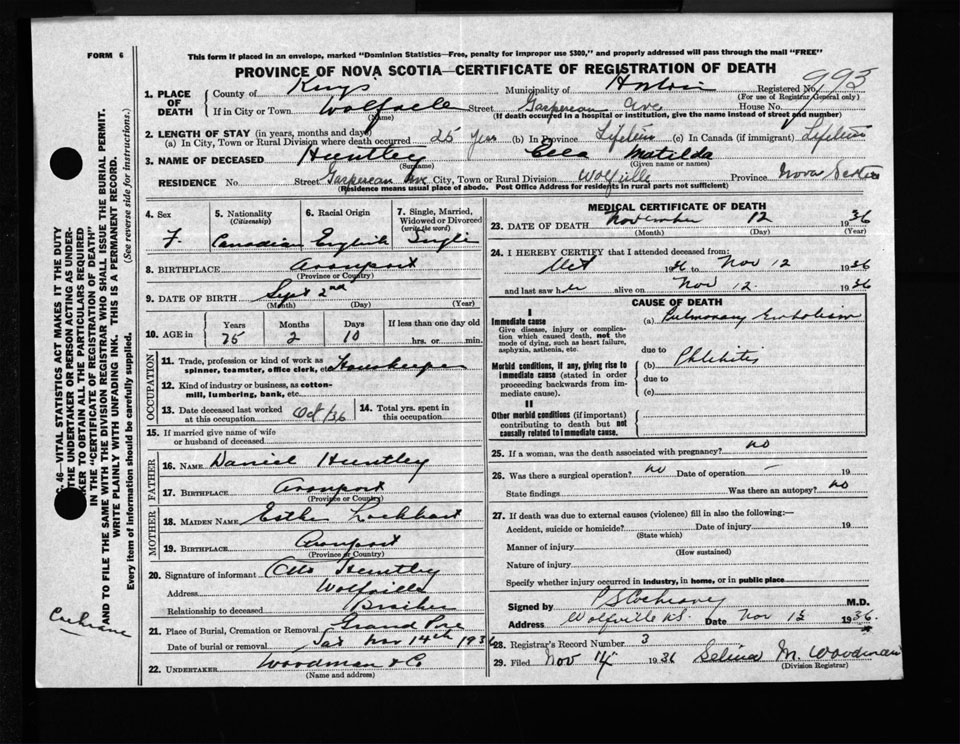 FORM 6
This form if placed in an envelope, marked "Dominion Statistics—Free, penalty for improper use $300," and properly addressed will pass through the mail "FREE"
PROVINCE OF NOVA SCOTIA—CERTIFICATE OF REGISTRATION OF DEATH
1. PLACE OF DEATH
County of Kings Municipality of Horton Registered No. 993
(For use of Registrar General only)
If in City or Town Wolfville Street Gaspereau Ave House No.
(Name) (If death occurred in a hospital or institution, give the name instead of street and number)
2. LENGTH OF STAY (in years, months and days)
(a) In City, Town or Rural Division where death occurred 25 Years (b) In Province Lifetime (c) In Canada (if immigrant) Lifetime
3. NAME OF DECEASED Huntley Matilda
(Surname) (Given name or names)
RESIDENCE No. Street Gaspereau Ave City, Town or Rural Division Wolfville Province Nova Scotia
(Residence means usual place of abode. Post Office Address for residents in rural parts not sufficient)
4. Sex 5. Nationality 6. Racial Origin 7. Single, Married,
(Citizenship) Widowed or Divorced
(write the word)
F. Canadian English Single
8. BIRTHPLACE Avonport
(Province or Country)
9. DATE OF BIRTH Sept 2nd
(Month) (Day) (Year)
10. AGE in Years Months Days If less than one day old
75 2 10 hrs. or min.
OCCUPATION
11. Trade, profession or kind of work as spinner, teamster, office clerk, etc. Housekeeper
12. Kind of industry or business, as cotton-mill, lumbering, bank, etc.
13. Date deceased last worked at this occupation Oct/36 14. Total yrs. spent in this occupation
15. If married give name of wife or husband of deceased
FATHER
16. NAME Daniel Huntley
17. BIRTHPLACE Avonport
(Province or Country)
MOTHER
18. MAIDEN NAME Esther Lockhart
19. BIRTHPLACE Avonport
(Province or Country)
20. Signature of informant Huntley
Address Wolfville
Relationship to deceased Brother
21. Place of Burial, Cremation or Removal Grand Pre
Date of burial or removal Sat Nov 14th 1936
22. UNDERTAKER Woodman & Co
(Name and address)
MEDICAL CERTIFICATE OF DEATH
23. DATE OF DEATH November 12 1936
(Month) (Day) (Year)
24. I HEREBY CERTIFY that I attended deceased from:
Oct 1936 to Nov 12 1936
and last saw her alive on Nov 12. 1936
CAUSE OF DEATH
I
Immediate cause (a) Pulmonary Embolism
Give disease, injury or complication which caused death, not the mode of dying, such as heart failure, asphyxia, asthenia, etc.
due to
Morbid conditions, if any, giving rise to immediate cause (stated in order proceeding backwards from immediate cause).
(b) Phlebitis
due to
(c)
II
Other morbid conditions (if important) contributing to death but not causally related to immediate cause.
25. If a woman, was the death associated with pregnancy? no
26. Was there a surgical operation? no Date of operation — 19
State findings Was there an autopsy? no
27. If death was due to external causes (violence) fill in also the following:—
Accident, suicide or homicide? Date of injury 19
(State which)
Manner of injury
(How sustained)
Nature of injury
Specify whether injury occurred in industry, in home, or in public place
Signed by Cochrane M.D.
Address Wolfville N.S. Date Nov 13 1936
28. Registrar's Record Number 3
29. Filed Nov 14 1936 Selina M. Woodman
(Division Registrar)
46—VITAL STATISTICS ACT MAKES IT THE DUTY
THE UNDERTAKER OR PERSON ACTING AS UNDER-
KER TO OBTAIN ALL THE PARTICULARS REQUIRED
IN THE "CERTIFICATE OF REGISTRATION OF DEATH"
AND TO FILE THE SAME WITH THE DIVISION REGISTRAR WHO SHALL ISSUE THE BURIAL PERMIT.
WRITE PLAINLY WITH UNFADING INK. THIS IS A PERMANENT RECORD.
Every item of information should be carefully supplied. (See reverse side for instructions.)
Cochrane